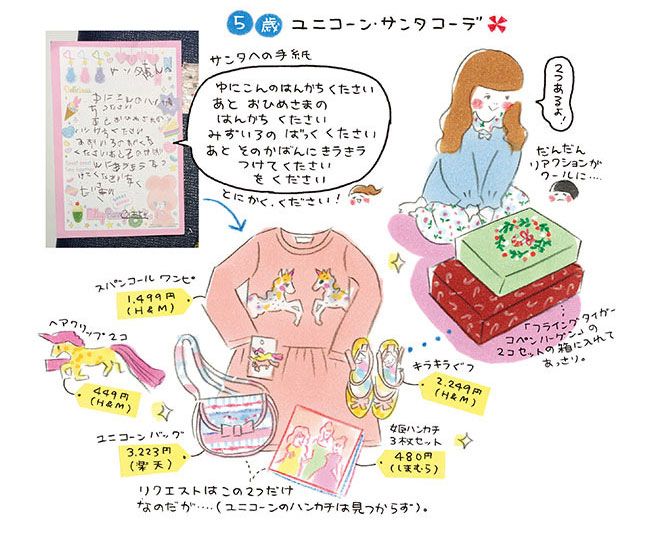 5歳 ユニコーン・サンタコーデ
サンタへの手紙
ゆにこんのはんかちください
あと おひめさまの
はんかち ください
みずいろの ばっく ください
あと そのかばんにキラキラ
つけてください
を ください
とにかく、ください!
2つあるよ!
だんだん
リアクションが
クールに…
「フライングタイガー
コペンハーゲン」の
2コセットの箱に入れて
あっさり。
スパンコール ワンピ
1.499円
(H&M)
ヘアクリップ2コ
449円
(H&M)
キラキラぐつ
2.249円
(H&M)
ユニコーン バッグ
3.223円
(楽天)
姫ハンカチ
3枚セット
480円
(しまむら)
リクエストはこの2つだけ
なのだが‥‥(ユニコーンのハンカチは見つからず)。